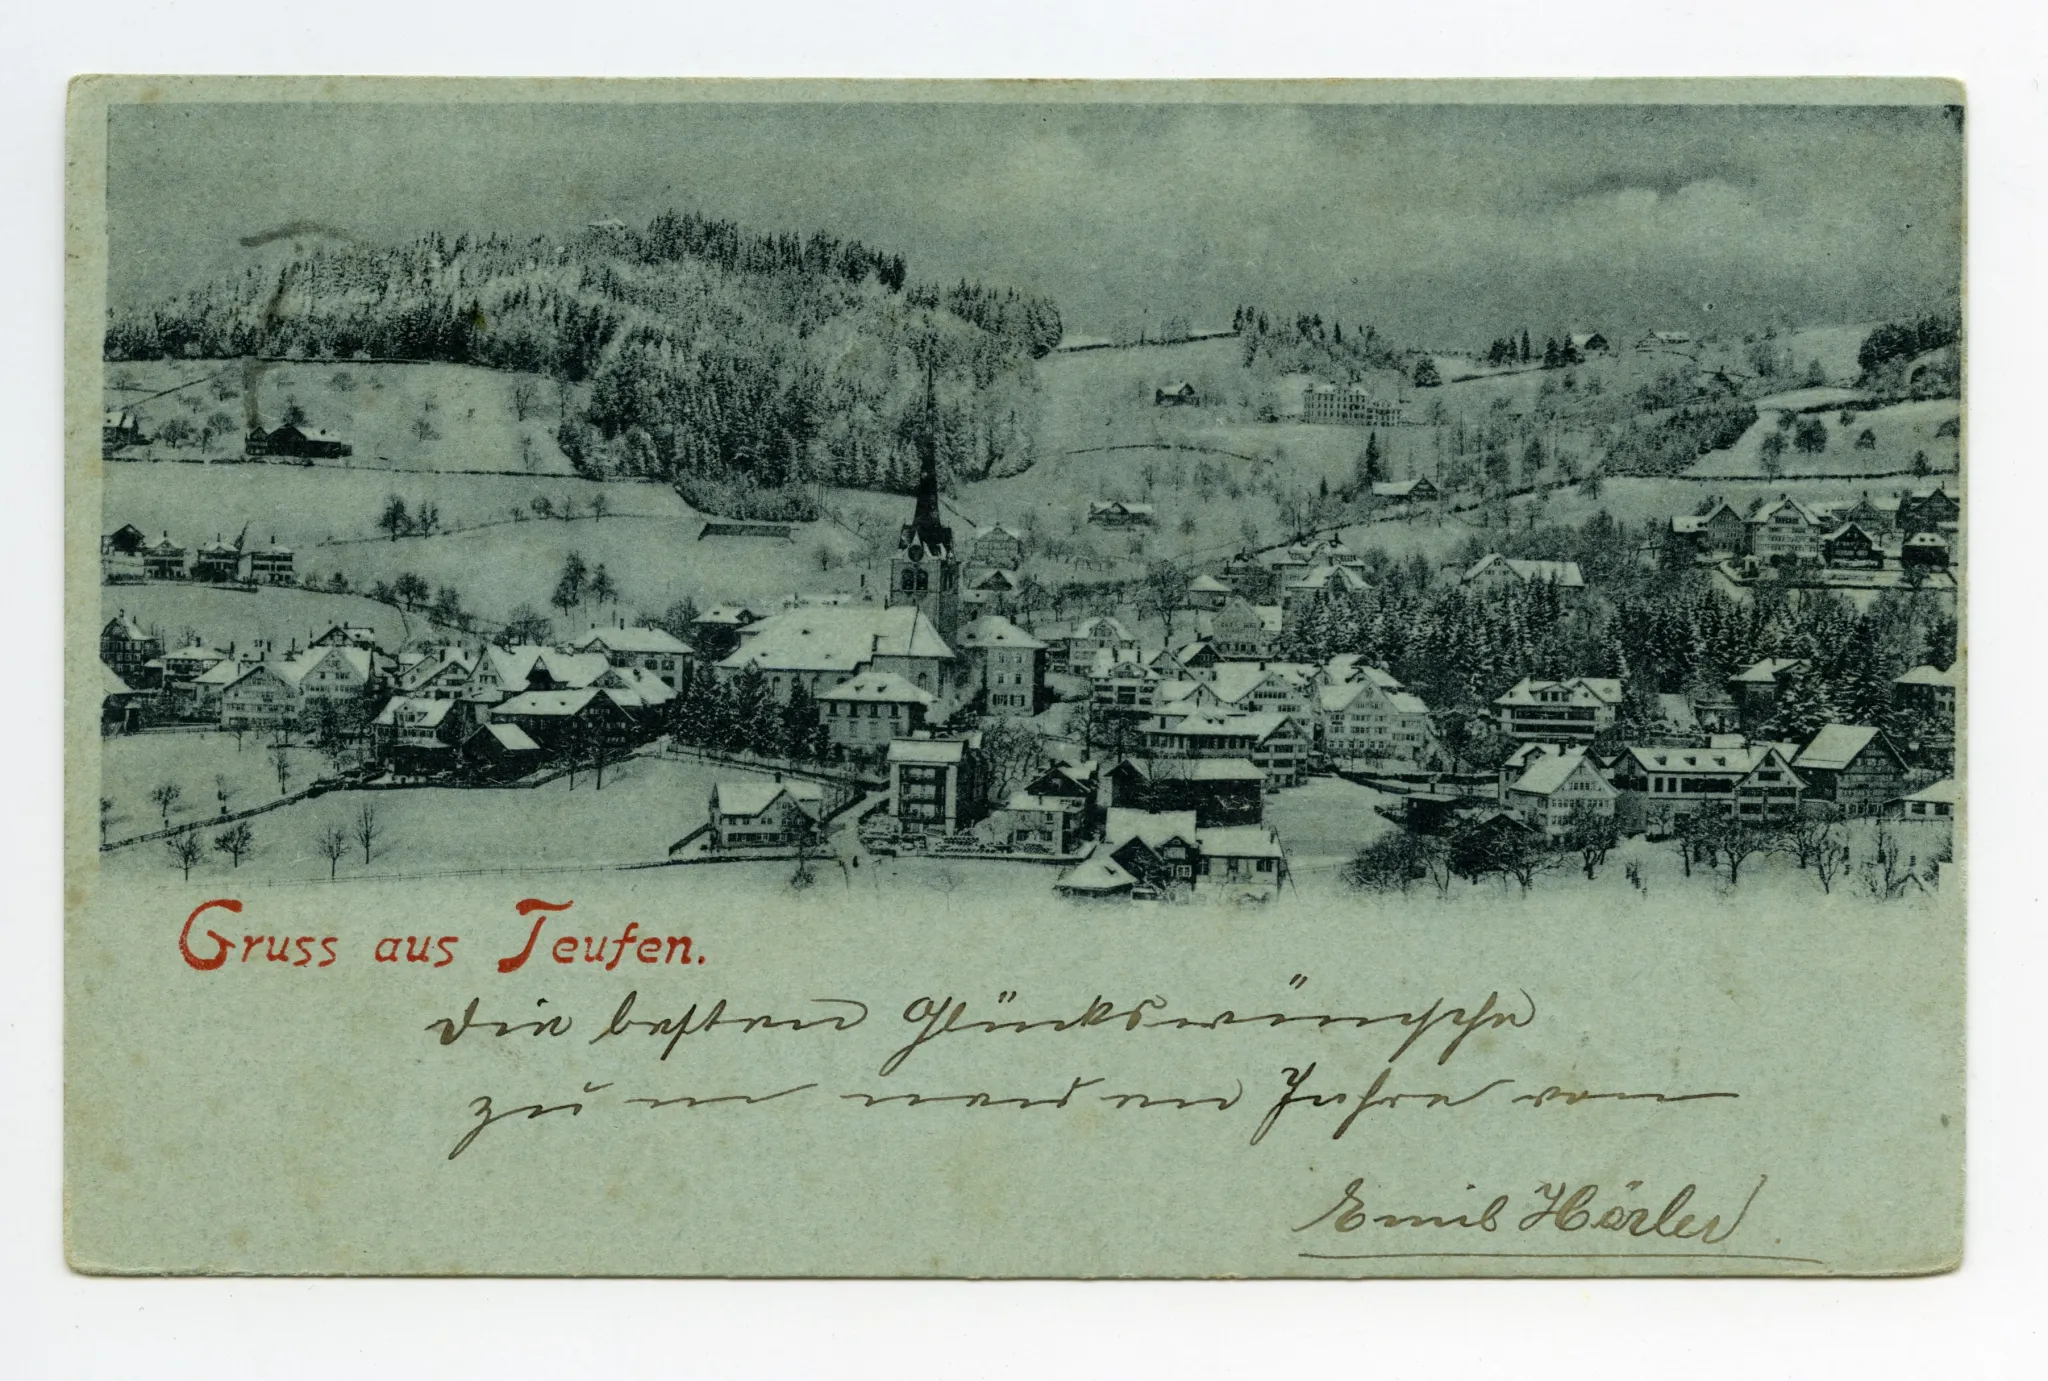 Gruss aus Teufen.
Die besten Glückswünsche
zum neuen Jahre von
Emil Hörler